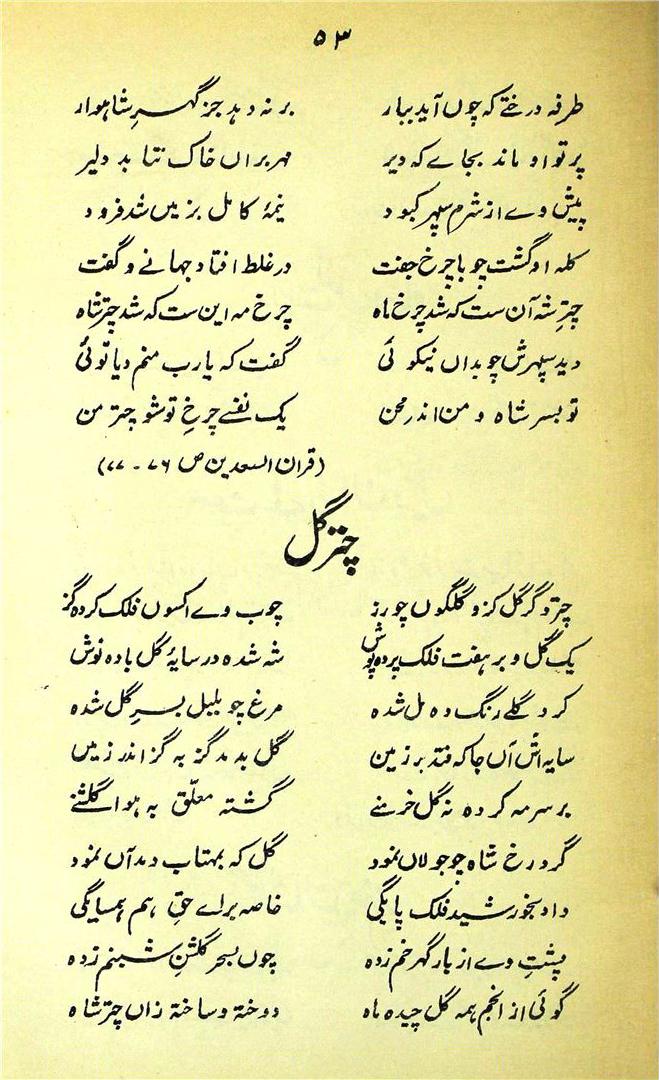 ۵۳
طرفہ درختے کہ چوں آید ببار بر نہ دہد جز گہرِ شاہوار
پرتو او ماند بجاے کہ دیر مہر براں خاک نتابد دلیر
پیش وے از شرم سپہر کبود نیمۂ کامل بزمیں شد فرود
کلہ او گشت چو با چرخ جفت در غلط افتاد جہانے و گفت
چترِ شہ آن ست کہ شد چرخ ماہ چرخ مہ این ست کہ شد چترِ شاہ
دید سپہرش چو بداں نیکوئی گفت کہ یارب منم دیا توئی
تو بسر شاہ و من اندر محن یک نفسے چرخِ تو شو چتر من
(قران السعدین ص ۷۶ - ۷۷)
چترِ گل
چتر و گر گل کز و گلگوں چو رز چوب وے اکسوں فلک کردہ گز
یک گل و بر ہفت فلک پردہ پوش شہ شدہ در سایۂ گل بادہ نوش
کرد گلے رنگ دہ مل شدہ مرغ چو بلبل بسرِ گل شدہ
سایہ اش آں جا کہ فتد بر زمین گل بدمد گز بہ گز اندر زمیں
بر سر مہ کردہ نہ گل خرمنے گشتہ معلّق بہ ہوا گلشنے
گرد رخ شاہ چو جولاں نمود گل کہ بمہتاب دمد آں نمود
داد بخورشید فلک پایگی خاصہ براے حقِ ہم ہمسایگی
پشتِ وے از بار گہر خم زدہ چوں بسحر گلشنِ شبنم زدہ
گوئی از انجم ہمہ گل چیدہ ماہ دوختہ و ساختہ زاں چتر شاہ